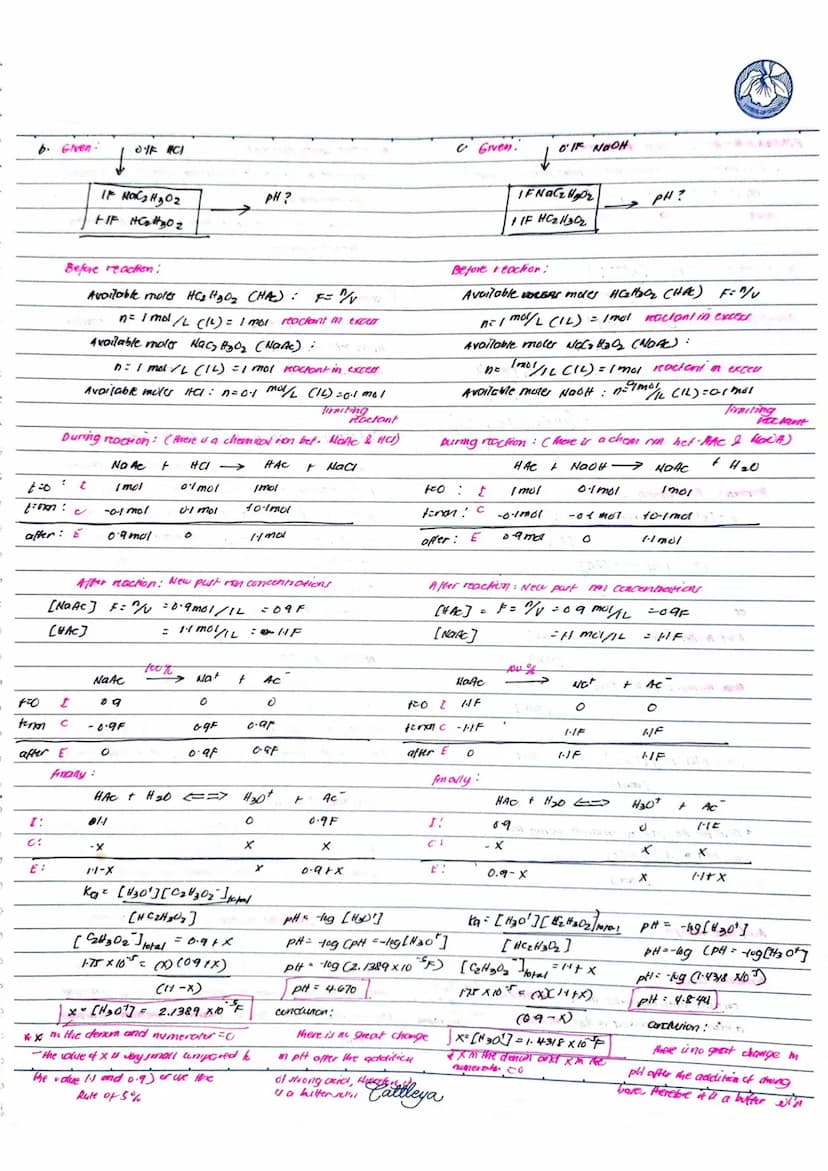 b. Given: 0.1F HCl
1F NaC2H3O2
1F HC2H3O2
pH?
Before reaction:
Available moles HC2H3O2 (HAc): F = n/v
n = 1 mol/L (1L) = 1 mol reactant in excess
Available moles NaC2H3O2 (NaAc):
n = 1 mol/L (1L) = 1 mol reactant in excess
Available moles HCl: n = 0.1 mol/L (1L) = 0.1 mol
limiting reactant
During reaction: (there is a chemical rxn bet. NaAc & HCl)
NaAc + HCl → HAc + NaCl
t=0 : I 1mol 0.1mol 1mol
t=rxn : C -0.1mol 0.1 mol +0.1mol
after: E 0.9mol 0 1.1mol
After reaction: New post rxn concentrations
[NaAc] F = n/v = 0.9mol/1L = 0.9 F
[HAc] = 1.1 mol/1L = 1.1F
NaAc 100% → Na+ + Ac-
t=0 I 0.9 0 0
t=rxn C -0.9F 0.9F 0.9F
after E 0 0.9F 0.9F
finally:
HAc + H2O <=> H3O+ + Ac-
I: 1.1 0 0.9F
C: -x x x
E: 1.1-x x 0.9+x
Ka = [H3O+][C2H3O2-]total
[HC2H3O2]
[C2H3O2-]total = 0.9 + x
1.75 x10^-5 = (x)(0.9+x)
(1.1-x)
x = [H3O+] = 2.1389 x10^-5 F
* x in the denom and numerator = 0
- the value of x is very small compared to
the value 1.1 and 0.9) or use the
Rule of 5%
pH = -log [H3O+]
pH = -log (pH = -log[H3O+]
pH = -log (2.1389 x10^-5 F)
pH = 4.670
conclusion:
there is no great change
in pH after the addition
of strong acid, therefore it
is a buffer soln
c. Given: 0.1F NaOH
1F NaC2H3O2
1F HC2H3O2
pH?
Before reaction:
Available moles HC2H3O2 (HAc) F = n/v
n = 1 mol/L (1L) = 1mol reactant in excess
Available moles NaC2H3O2 (NaAc):
n = 1mol/1L (1L) = 1 mol reactant in excess
Available moles NaOH: n = 0.1mol/L (1L) = 0.1 mol
limiting reactant
During reaction: (there is a chem rxn bet. HAc & NaOH)
HAc + NaOH → NaAc + H2O
t=0 : I 1mol 0.1mol 1mol
t=rxn : C -0.1mol -0.1 mol +0.1mol
after: E 0.9mol 0 1.1mol
After reaction: New post rxn concentrations
[HAc] = F = n/v = 0.9 mol/1L = 0.9F
[NaAc] = 1.1 mol/1L = 1.1F
NaAc 100% → Na+ + Ac-
t=0 I 1.1F 0 0
t=rxn C -1.1F 1.1F 1.1F
after E 0 1.1F 1.1F
finally:
HAc + H2O <=> H3O+ + Ac-
I: 0.9 0 1.1F
C: -x x x
E: 0.9-x x 1.1+x
Ka = [H3O+][C2H3O2-]total
[HC2H3O2]
[C2H3O2-]total = 1.1 + x
1.75 x10^-5 = (x)(1.1+x)
(0.9-x)
x = [H3O+] = 1.4318 x10^-5 F
* x in the denom and x in the
numerator = 0
pH = -log[H3O+]
pH = -log (pH = -log[H3O+]
pH = -log (1.4318 x10^-5)
pH = 4.844
conclusion:
there is no great change in
pH after the addition of strong
base, therefore it is a buffer soln
Cattleya